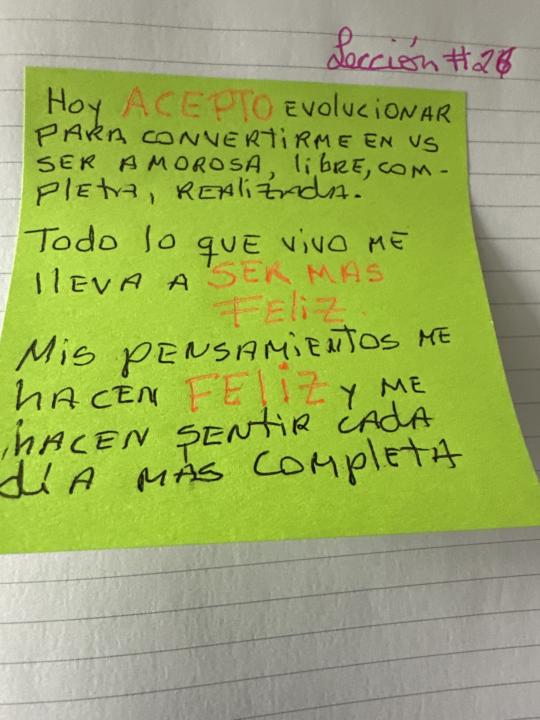 Lección #26
Hoy ACEPTO EVOLUCIONAR
PARA CONVERTIRME EN US
SER AMOROSA, libRE, COM-
PlEtA, REALiZADA.
Todo lo que vivo ME
llEVA A SER MAS
FEliZ.
Mis PENSAMiENTOS ME
hACEN FELIZ y ME
hACEN SENTiR CADA
díA MAS COMPlETA